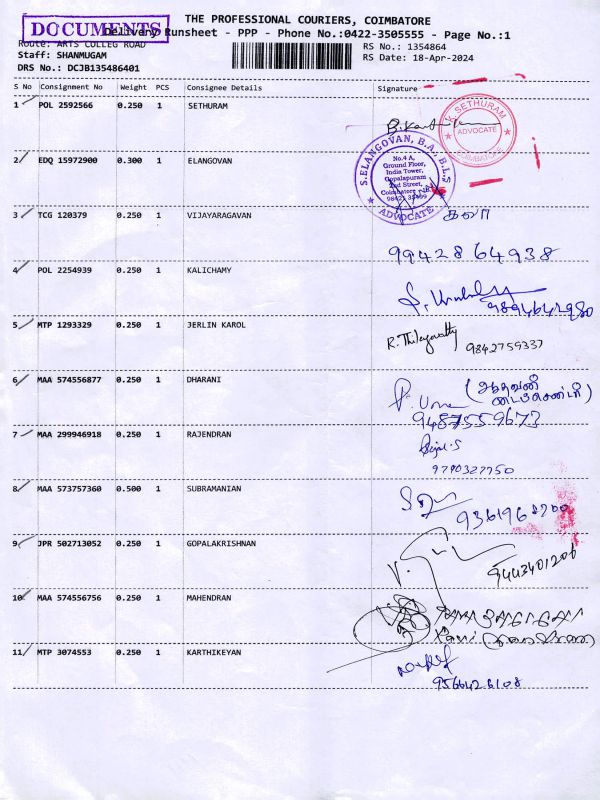 THE PROFESSIONAL COURIERS, COIMBATORE
DOCUMENTS
Delivery Runsheet - PPP - Phone No.:0422-3505555 - Page No.:1
Route: ARTS COLLEG ROAD
RS No.: 1354864
Staff: SHANMUGAM
RS Date: 18-Apr-2024
DRS No.: DCJB135486401
S No Consignment No Weight PCS Consignee Details Signature
1 POL 2592566 0.250 1 SETHURAM
K. SETHURAM
ADVOCATE
COIMBATORE
2 EDQ 15972900 0.300 1 ELANGOVAN
S.ELANGOVAN, B.A., B.L.,
No.4 A,
Ground Floor,
India Tower,
Gopalapuram
2nd Street,
ADVOCATE
3 TCG 120379 0.250 1 VIJAYARAGAVAN
9942864938
4 POL 2254939 0.250 1 KALICHAMY
9894642980
5 MTP 1293329 0.250 1 JERLIN KAROL
9842759337
6 MAA 574556877 0.250 1 DHARANI
9487559673
7 MAA 299946918 0.250 1 RAJENDRAN
9790327750
8 MAA 573757360 0.500 1 SUBRAMANIAN
9361968700
9 JPR 502713052 0.250 1 GOPALAKRISHNAN
9443401206
10 MAA 574556756 0.250 1 MAHENDRAN
11 MTP 3074553 0.250 1 KARTHIKEYAN
9566426108